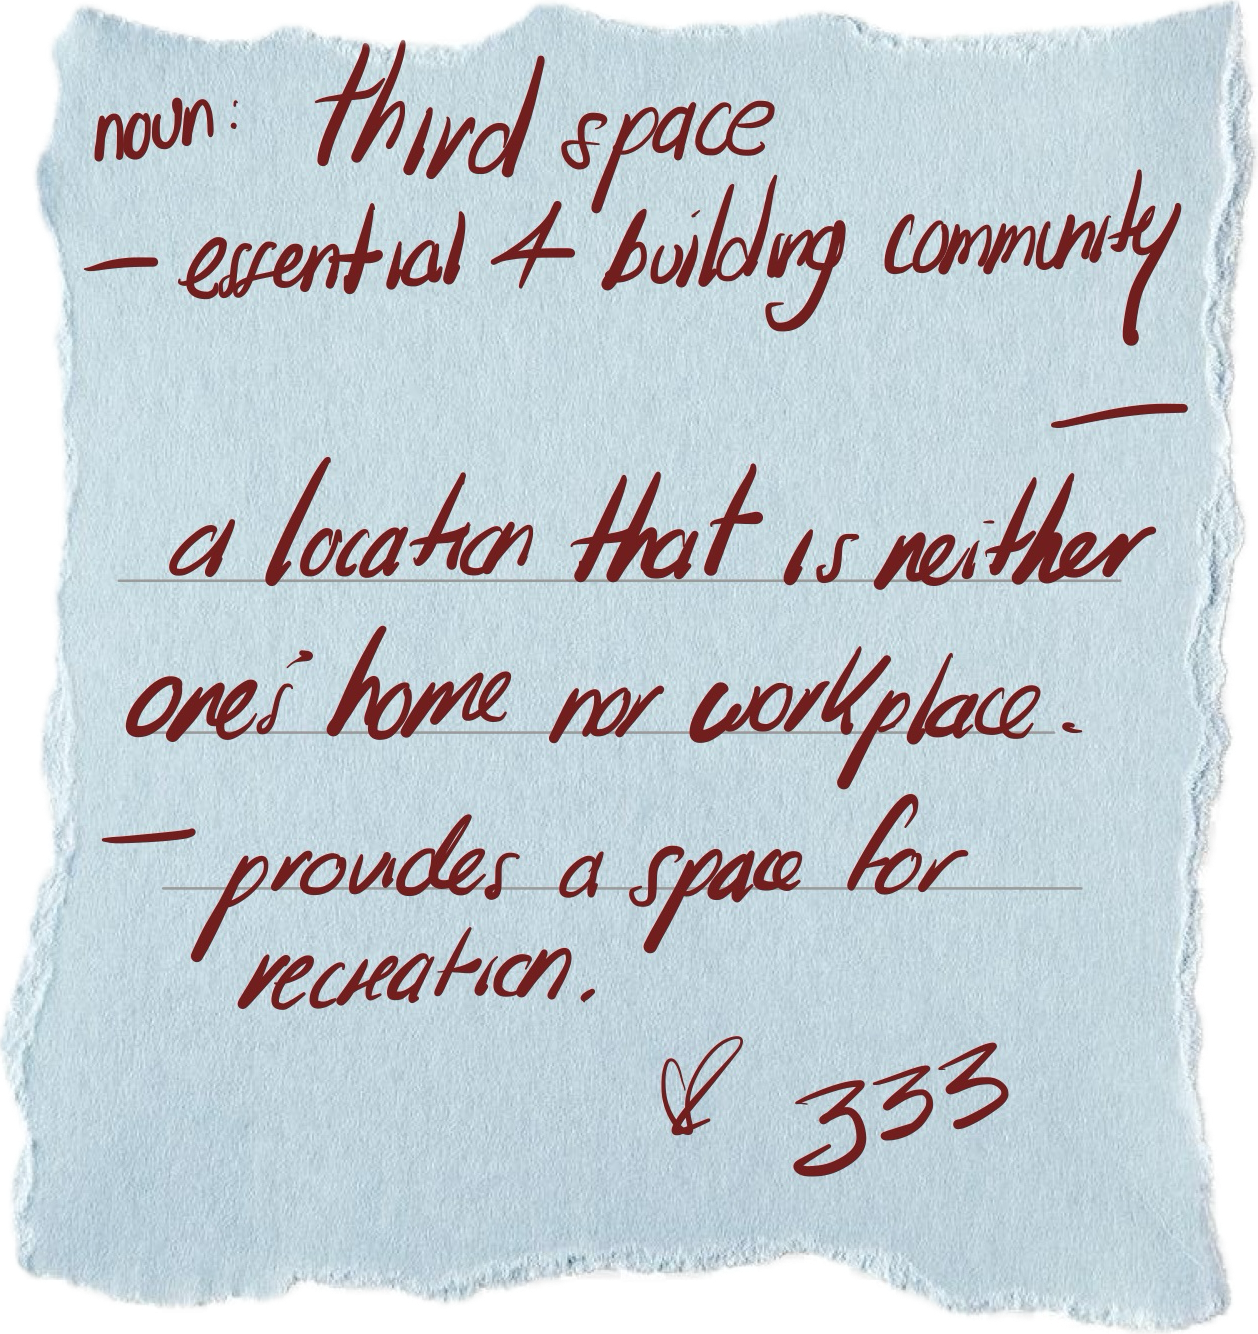 noun: third space
— essential 4 building community
—
a location that is neither
one's home nor workplace.
— provides a space for
recreation.
333